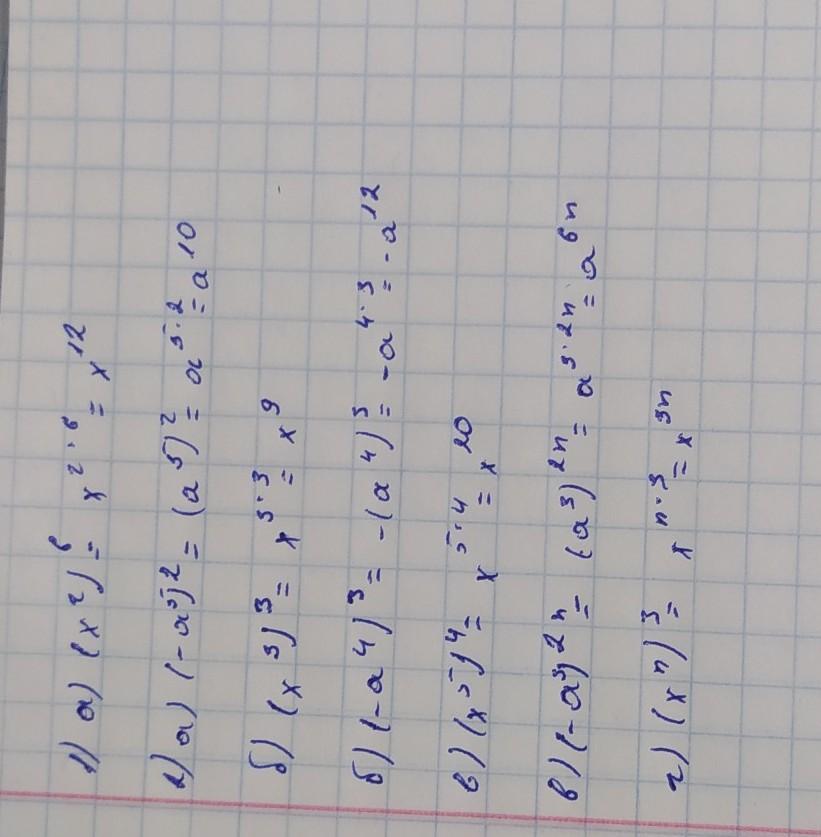 1) а) (x²)⁶ = x²·⁶ = x¹²
2) а) (-a⁵)² = (a⁵)² = a⁵·² = a¹⁰
б) (x³)³ = x³·³ = x⁹
б) (-a⁴)³ = -(a⁴)³ = -a⁴·³ = -a¹²
в) (x⁵)⁴ = x⁵·⁴ = x²⁰
в) (-a³)²ⁿ = (a³)²ⁿ = a³·²ⁿ = a⁶ⁿ
г) (xⁿ)³ = xⁿ·³ = x³ⁿ